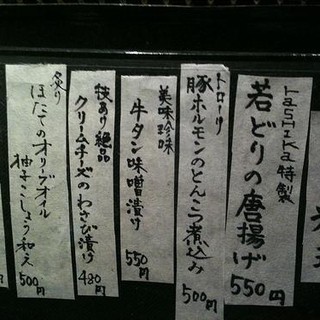 rashika特製
若どりの唐揚げ
550円
トローリ
豚ホルモンのとんこつ煮込み
500円
美味珍味
牛タン味噌漬け
550円
技あり絶品
クリームチーズのわさび漬け
480円
炙り
ほたてのオリーブオイル
柚子こしょう和え
500円
円